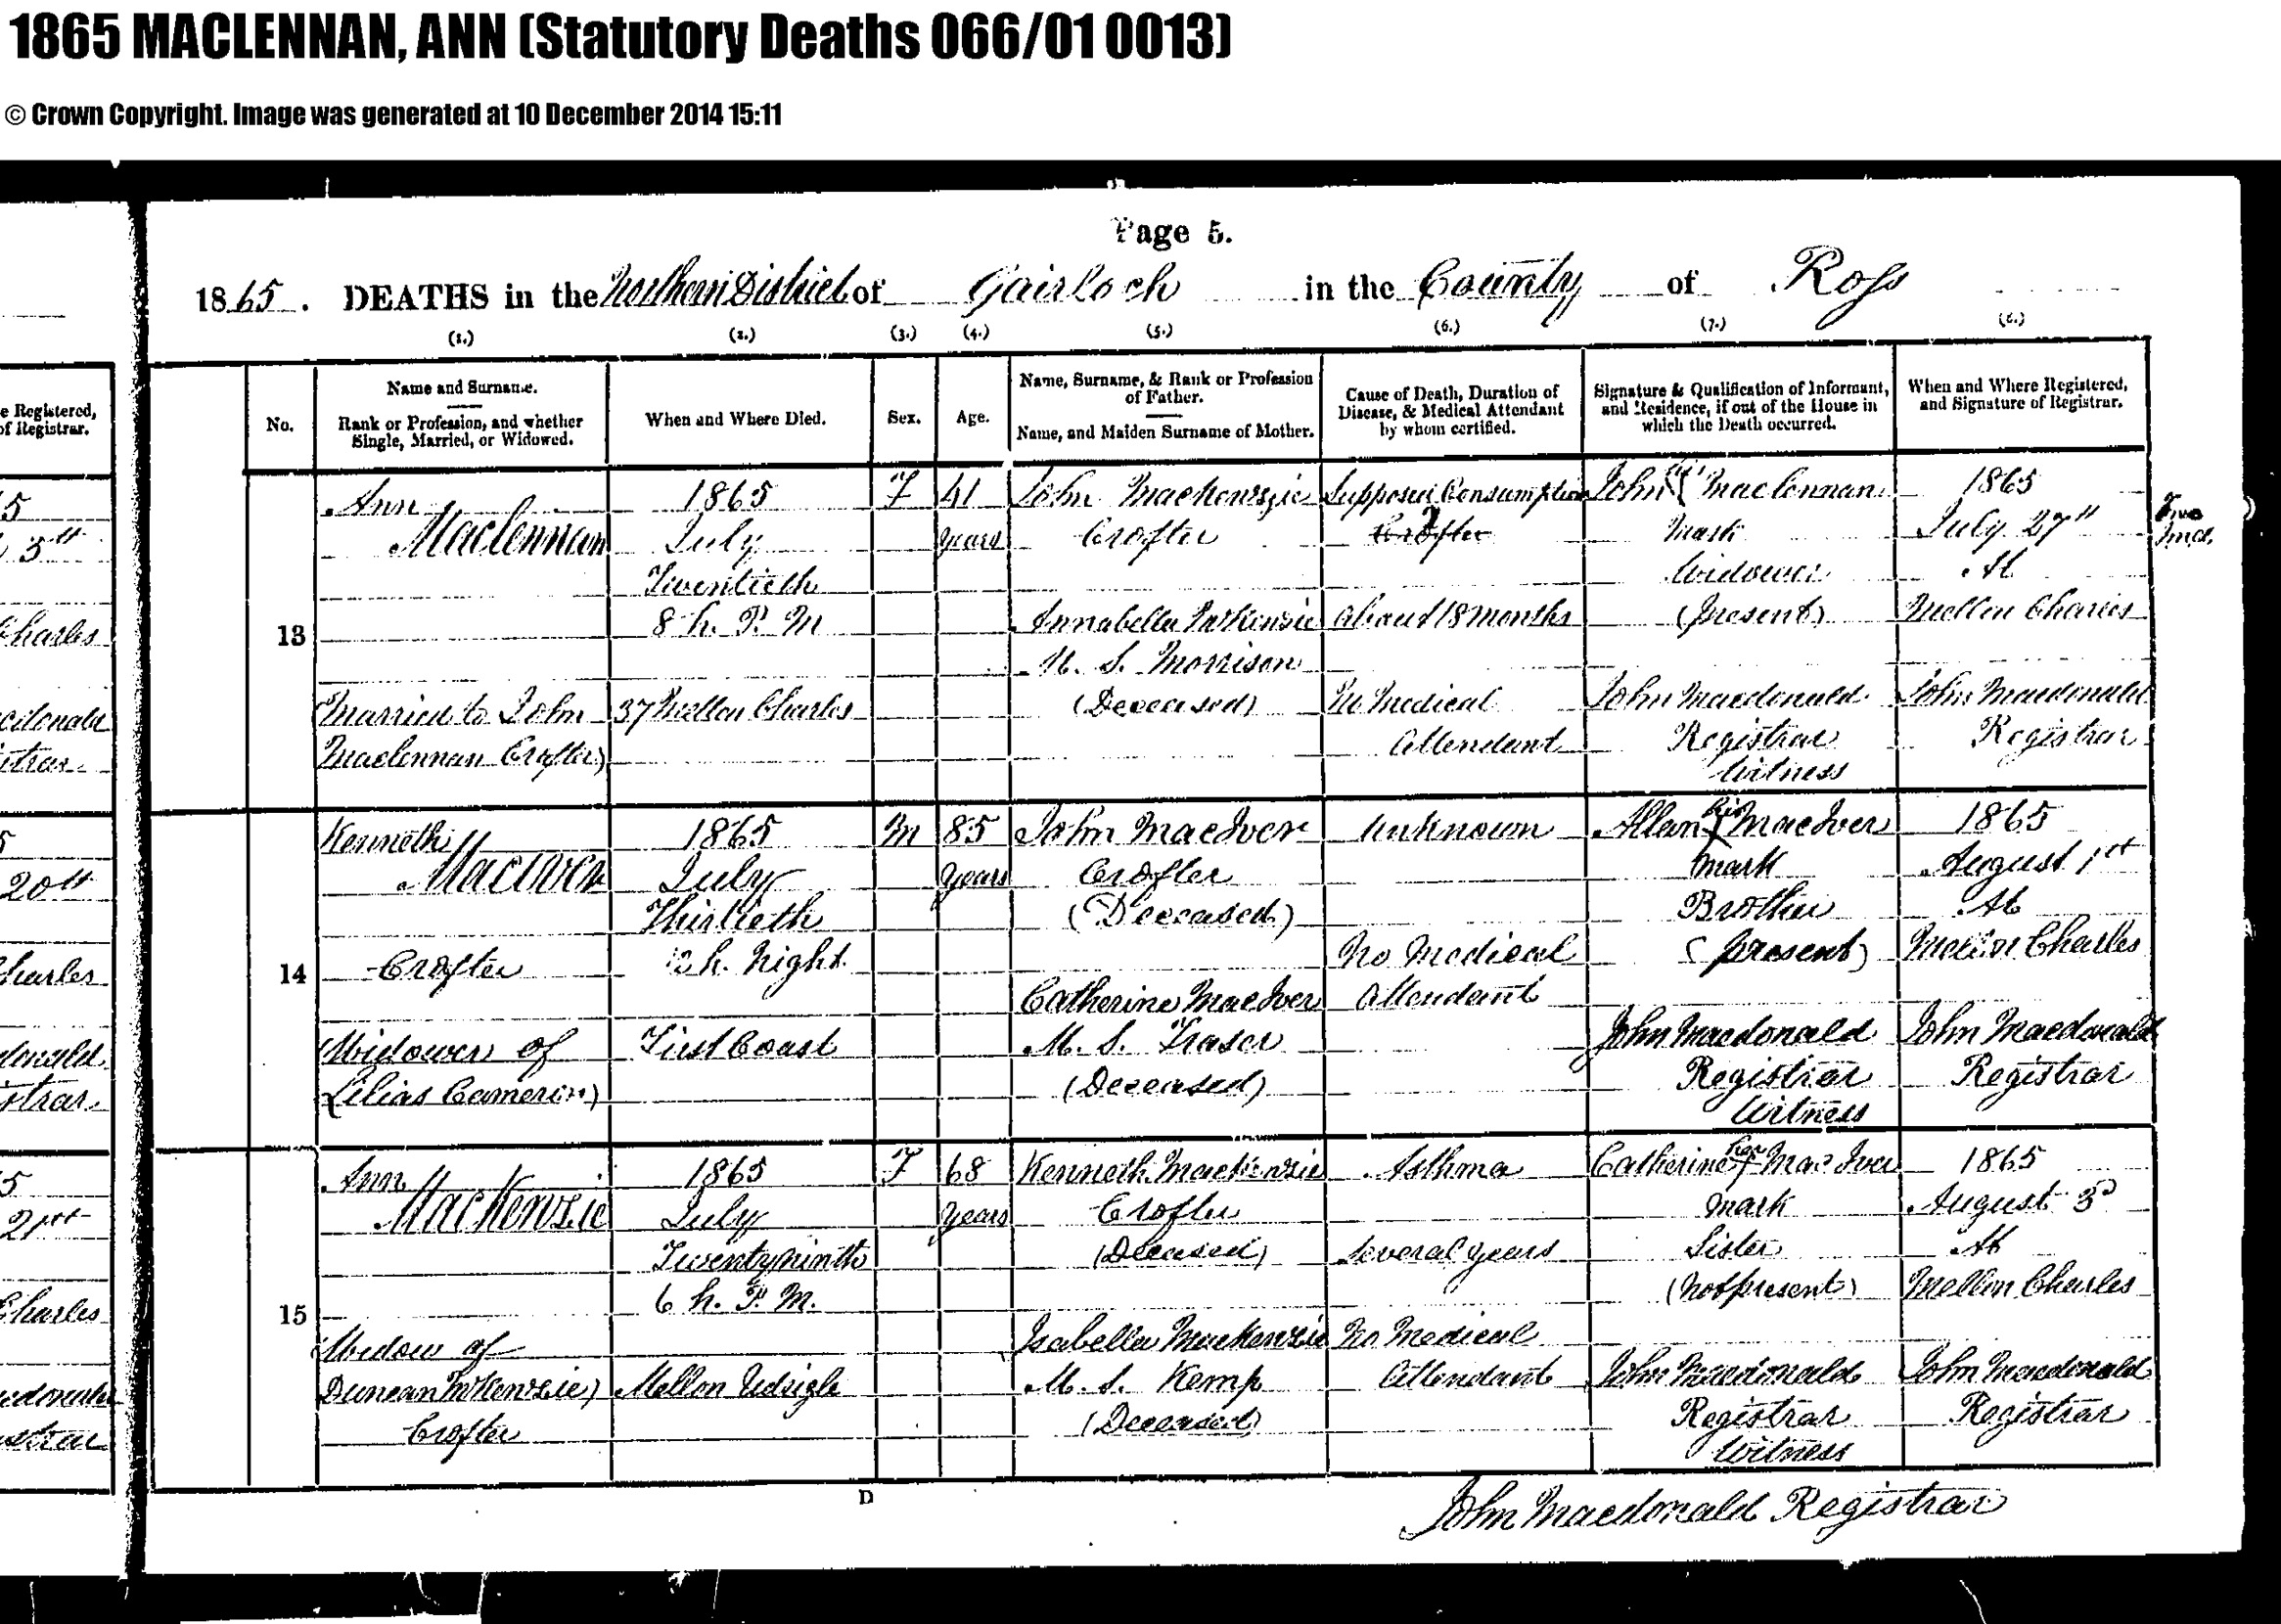 1865 MACLENNAN, ANN (Statutory Deaths 066/01 0013)
© Crown Copyright. Image was generated at 10 December 2014 15:11
Page 5.
1865. DEATHS in the Northern District of Gairloch in the County of Ross
(1.) (2.) (3.) (4.) (5.) (6.) (7.) (8.)
No.
Name and Surname.
Rank or Profession, and whether
Single, Married, or Widowed.
When and Where Died.
Sex.
Age.
Name, Surname, & Rank or Profession
of Father.
Name, and Maiden Surname of Mother.
Cause of Death, Duration of
Disease, & Medical Attendant
by whom certified.
Signature & Qualification of Informant,
and Residence, if out of the House in
which the Death occurred.
When and Where Registered,
and Signature of Registrar.
13
Ann
Maclennan
(Married to John
Maclennan Crofter)
1865
July
Twentieth
8 h. P. M
37 Mellon Charles
F
41
years
John MacKenzie
Crofter
Annabella McKenzie
M. S. Morrison
(Deceased)
Supposed Consumption
Crofter
about 18 months
No Medical
Attendant
John his Maclennan
mark
Widower
(present)
John Macdonald
Registrar
Witness
1865
July 27th
At
Mellon Charles
John Macdonald
Registrar
14
Kenneth
MacIver
Crofter
(Widower of
Lilias Cameron)
1865
July
Thirtieth
12 h. Night
First Coast
M
85
years
John MacIver
Crofter
(Deceased)
Catherine MacIver
M. S. Fraser
(Deceased)
Unknown
No Medical
Attendant
Allan his MacIver
mark
Brother
(present)
John Macdonald
Registrar
Witness
1865
August 1st
At
Mellon Charles
John Macdonald
Registrar
15
Ann
MacKenzie
(Widow of
Duncan McKenzie)
Crofter
1865
July
Twenty ninth
6 h. P. M.
Mellon Udrigle
F
68
years
Kenneth MacKenzie
Crofter
(Deceased)
Isabella MacKenzie
M. S. Kemp
(Deceased)
Asthma
Several years
No Medical
Attendant
Catherine her MacIver
mark
Sister
(not present)
John Macdonald
Registrar
Witness
1865
August 3d
At
Mellon Charles
John Macdonald
Registrar
D
John Macdonald Registrar